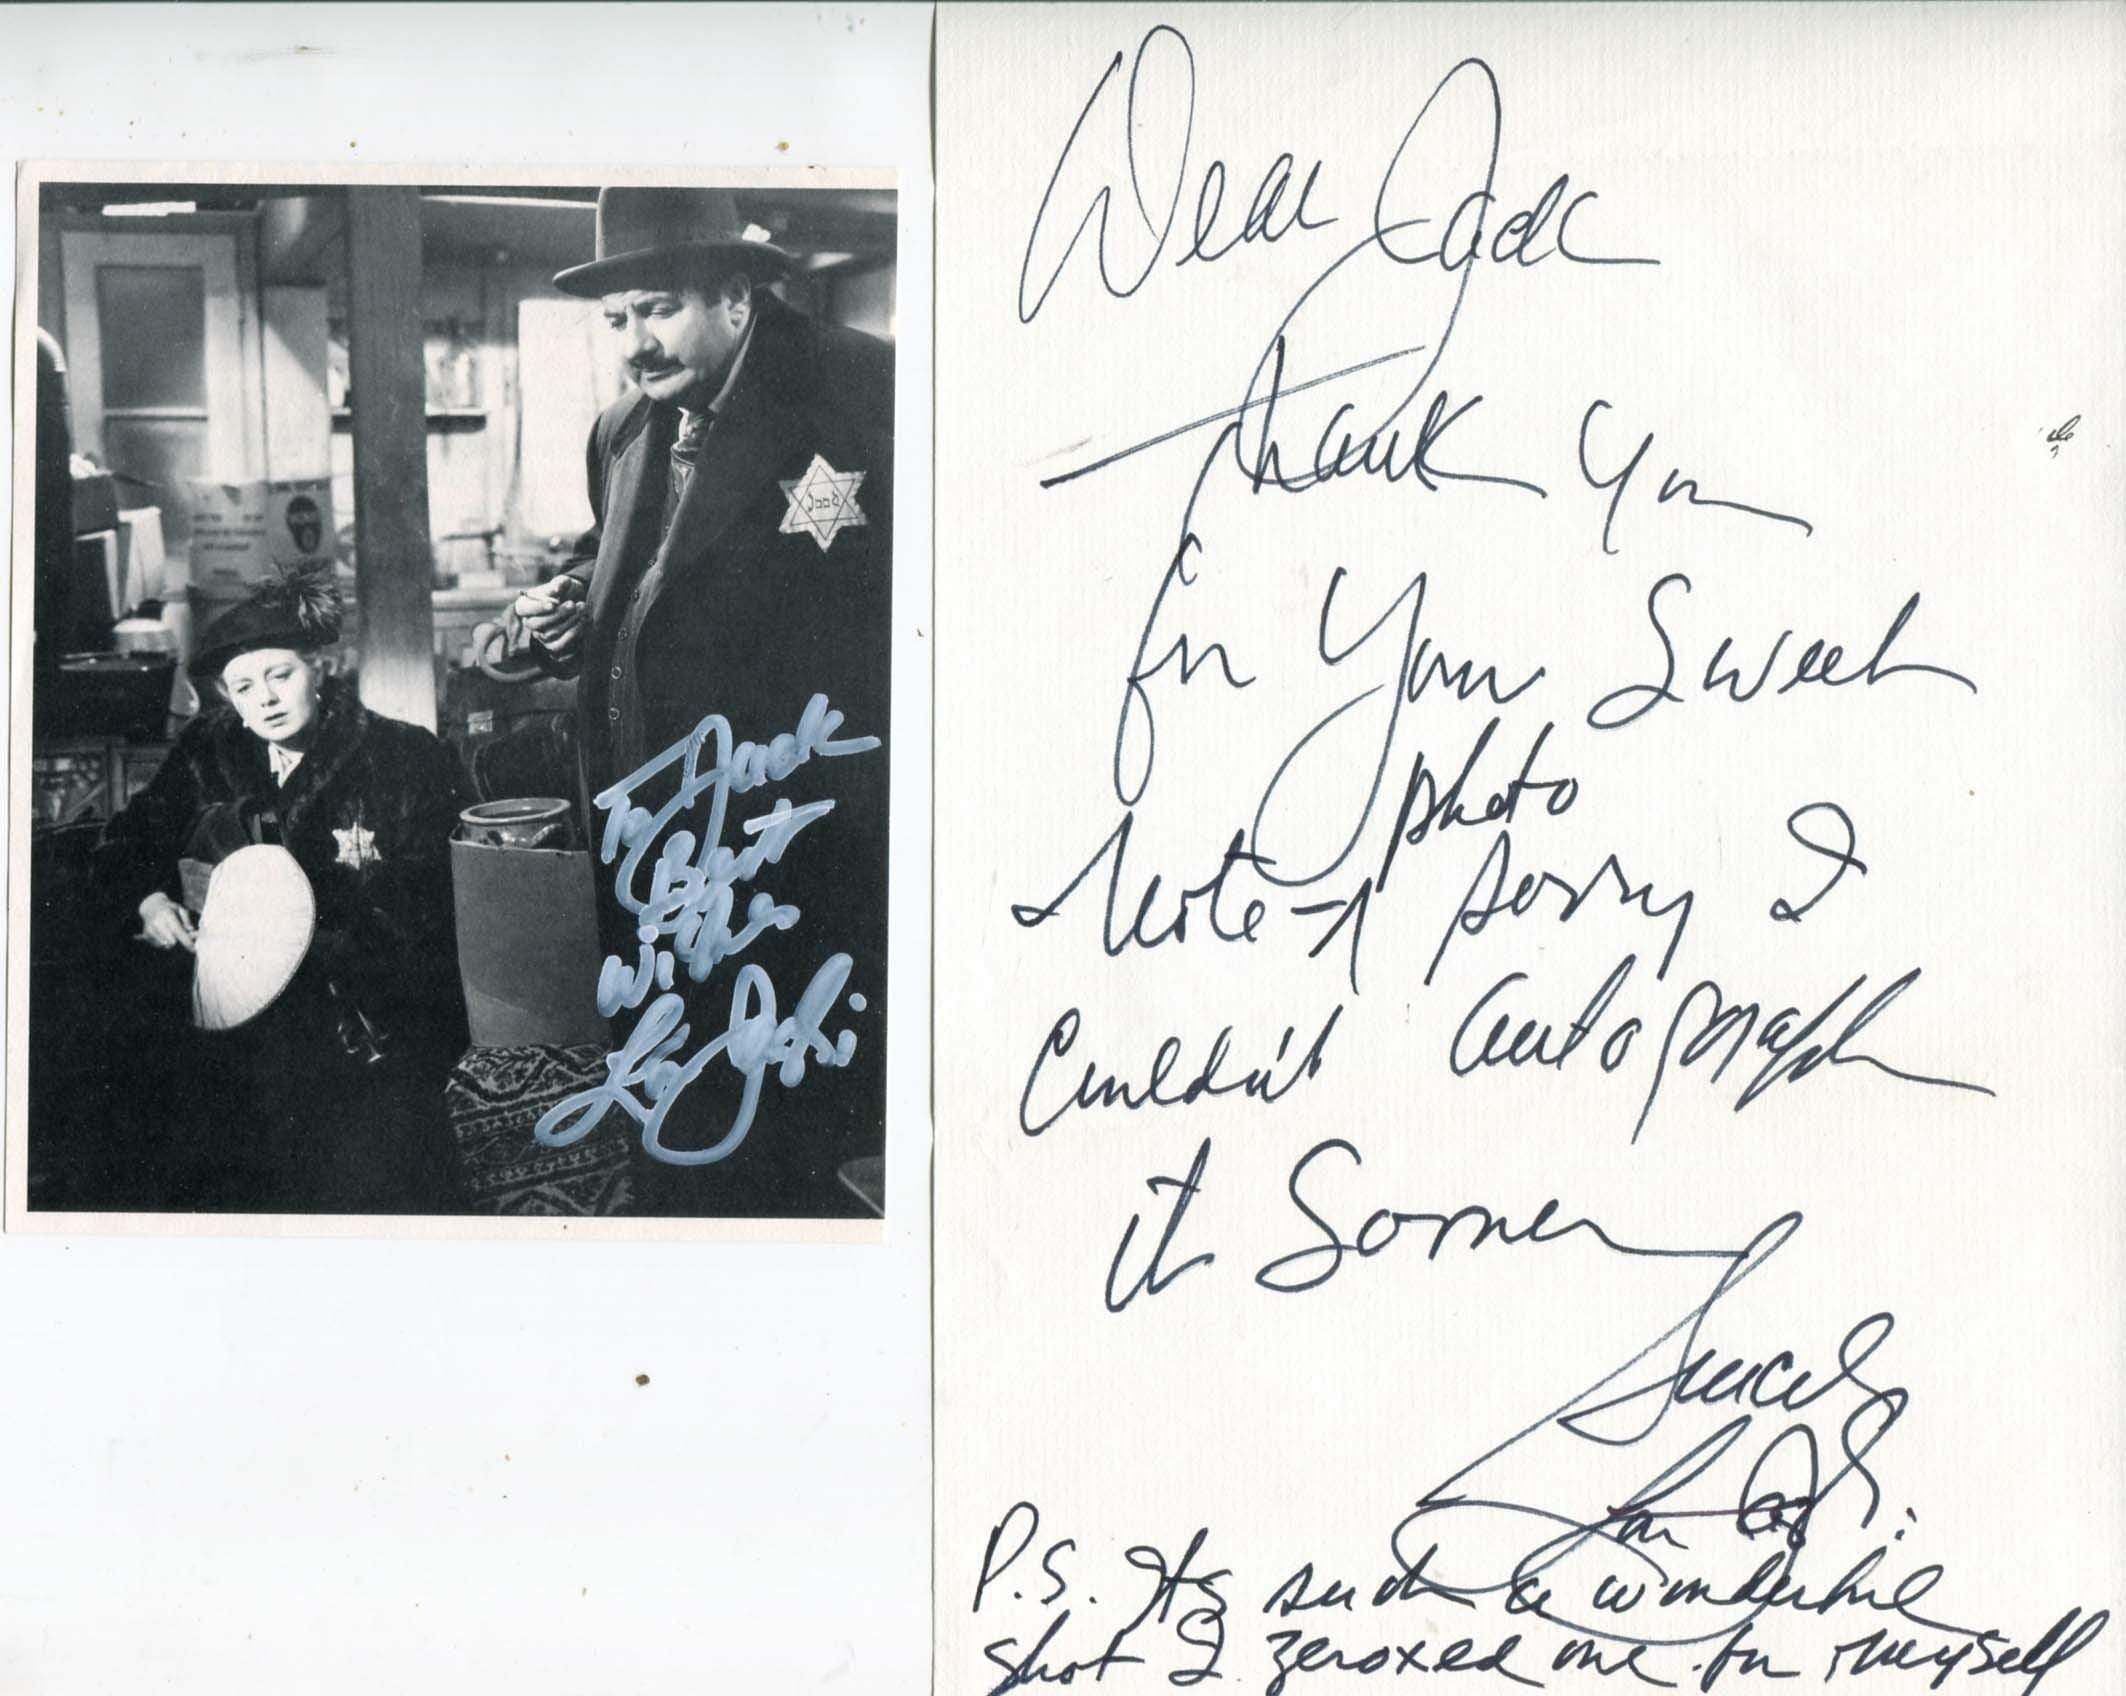 To Jack
Best
Wishes
Lou Jacobi
Jood
Dear Jack
Thank You
for Your Sweet
photo
Note - sorry I
Couldn't autograph
it Sooner
Sincerely
Lou Jacobi
P.S. Its such a wonderful
shot I zeroxed one for myself